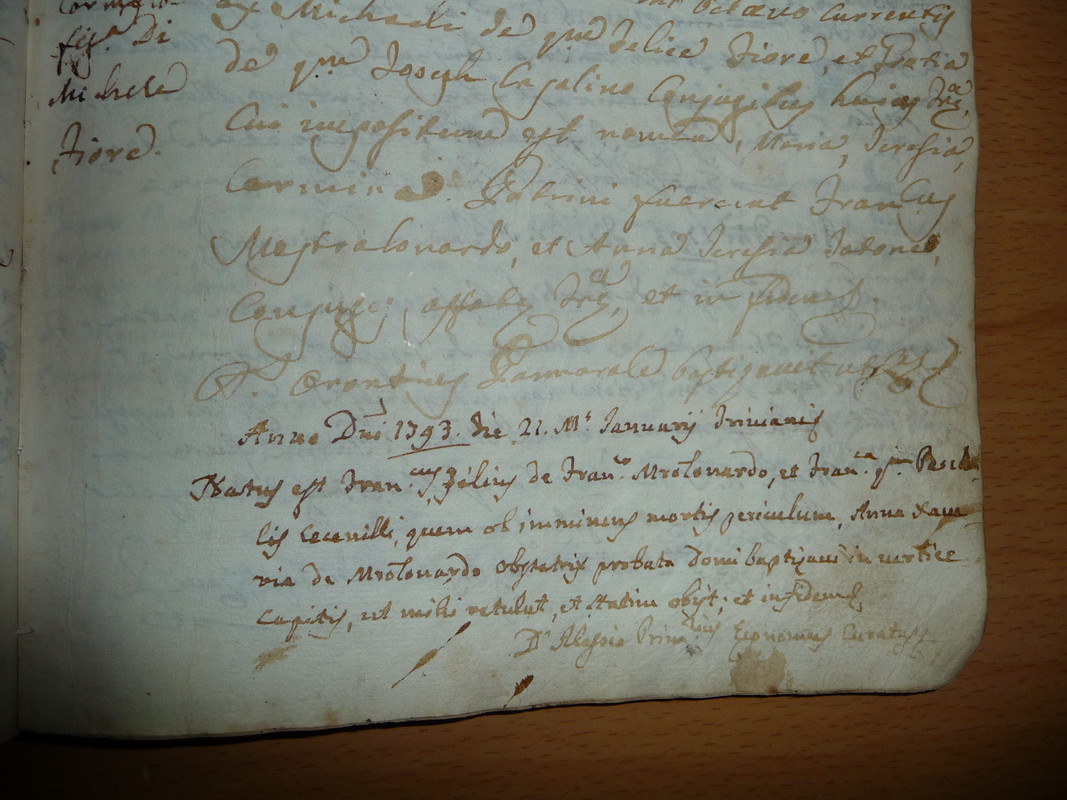 fig.a Di
Michele
Fiore.
ex Michaele de qm Felice Fiore, et Gratia
de qm Joseph Capalino Conjugibus hujus Trae
Cui impositum est nomen, Maria, Teresia,
Carmina. Patrini fuerunt Francus
Mastrolonardo, et Anna Teresia
Conjuges, ejusdem Trae, et in fidem
D. Orontius Jannarale baptizavit ut supra
Anno Dni 1793. Die 21. Ms Januarij Triviani
Natus est Fran.cus filius de Fran.co Mrolonardo, et Fran.ca qm Pascha
lis Cecenilli, quem ob imminens mortis periculum, Anna Xave
ria de Mrolonardo obstetrix probata domi baptizavit in vertice
capitis, ut mihi retulit, et statim obijt; et in fidem
Dr Alessio Economus Curatus